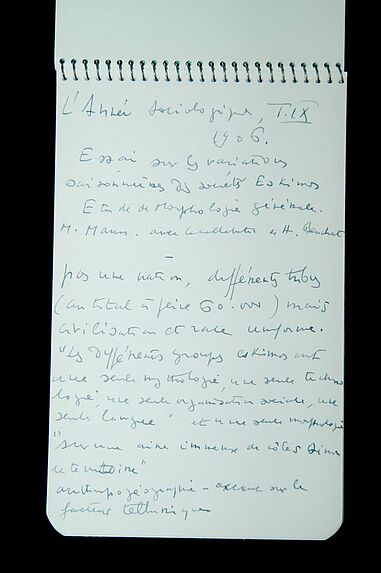 L'Année Sociologique, T. IX
1906.
Essai sur les variations
saisonnières des sociétés Eskimos
Etude de Morphologie générale.
M. Mauss. avec collaboration de H. Beuchat
pas une nation, différents tribus
(au total à peine 60.000) mais
civilisation et race uniforme.
"Les différents groupes eskimos ont
une seule mythologie, une seule techno
logie, une seule organisation sociale, une
seule langue" et une seule morphologie
"sur une aire immense de côtes
et territoire"
anthropogéographie - accent sur le
facteur tellurique